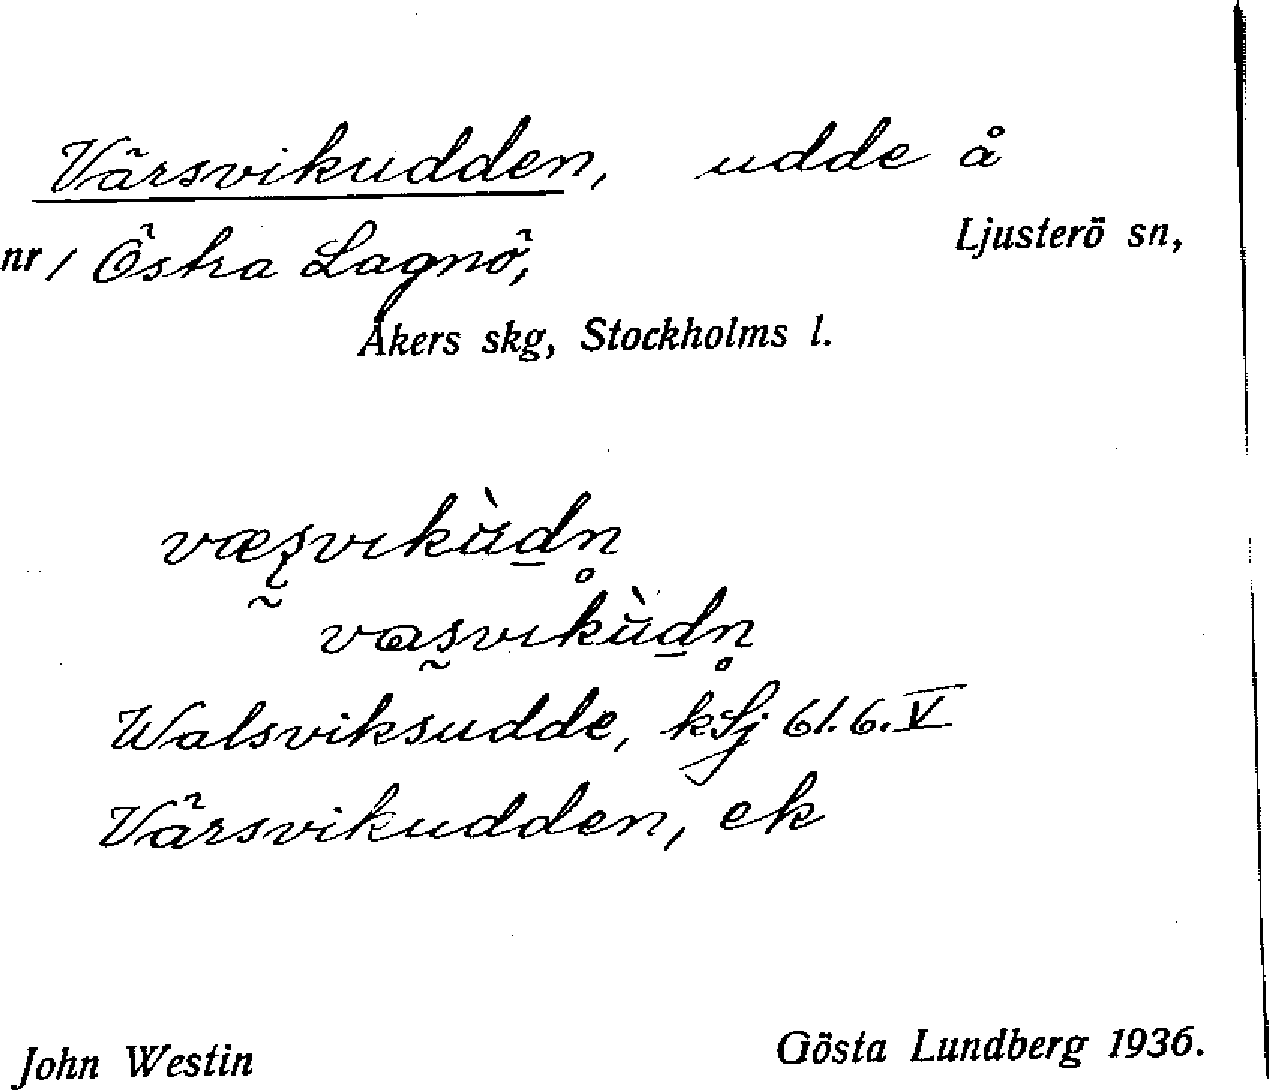 Värsvikudden, udde å
nr 1 Östra Lagnö, Ljusterö sn,
Åkers skg, Stockholms l.
væʂvɩkùd̲n̥
vaʂvɩkùd̲n̥
Walsviksudde, kLj 61.6.V
Värsvikudden, ek
John Westin Gösta Lundberg 1936.